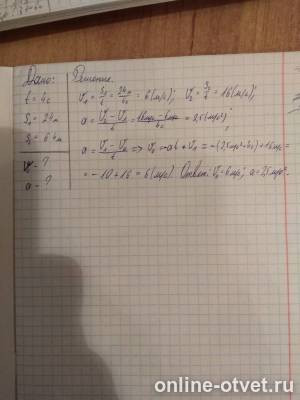 Дано:
t = 4с
S₁ = 24м
S₂ = 64м
V - ?
a - ?
Решение.
V₁ = S₁/t = 24м/4с = 6 (м/с); V₂ = S₂/t = 16 (м/с);
a = (V₂ - V₁)/t = (16м/с - 6м/с)/4с = 2,5 (м/с²);
= -10 + 16 = 6 (м/с). Ответ: V₀ = 6м/с; a = 2,5м/с².
online-otvet.ru